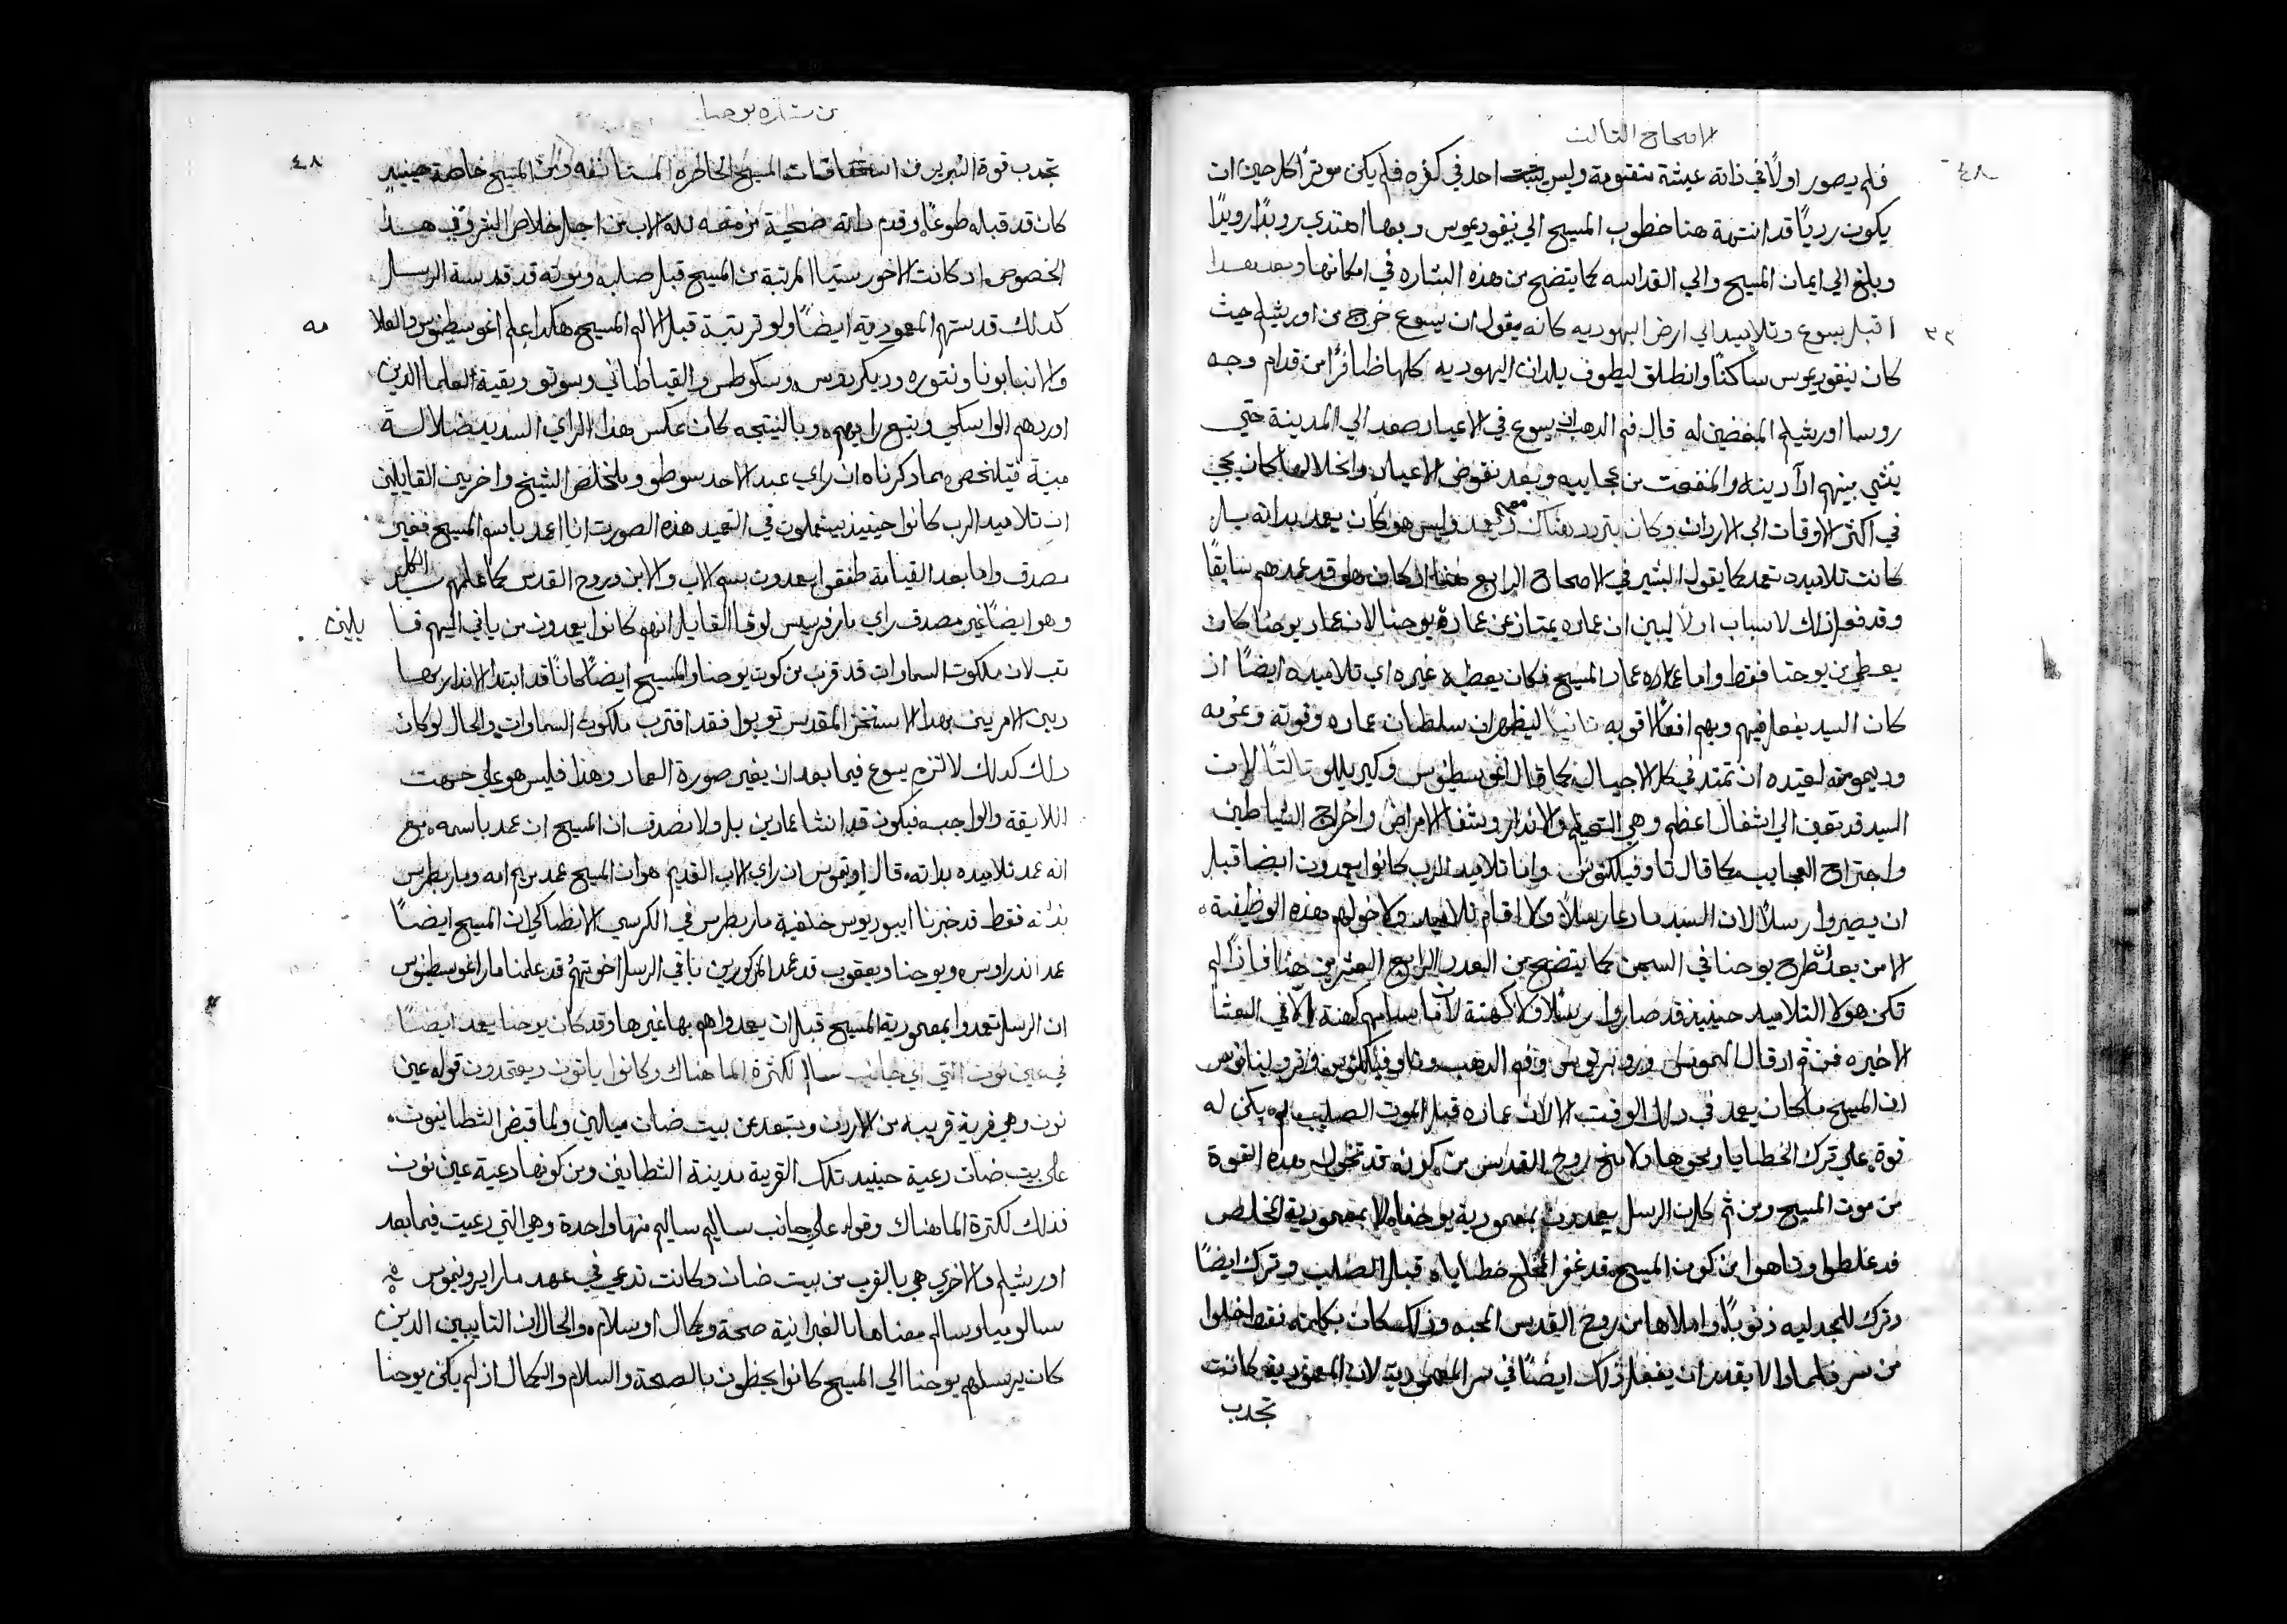 الاصحاح التالت
٤٨
فلم يصور اولاً في ذاته عيشة متقومة وليس يثبت احد في كفره فلم يكن موثراً كل حين ان
يكون رديًا قد انتهة هنا خطوب المسيح الي نيقوديموس وبها اهتدي رويدًا رويدًا
وبلغ الي ايمان المسيح والي القداسه كما يتضح من هذه البشاره في امكانها وبعد هدا
٢٢
اقبل يسوع وتلاميده الي ارض اليهوديه كانه يقول ان يسوع خرج من اورشليم حيث
كان نيقوديموس ساكنًا وانطلق ليطوف بلدان اليهوديه كلها ظافرًا من قدام وجه
روسا اورشليم المبغضين له قال فم الدهب ان يسوع في الاعياد صعد الي المدينة حتي
ينشي بينهم ادآ دينه والمنفعت من عجايبه وبعد نقوض الاعياد وانحلالها كان يجي
في اكثر الاوقات الي الاردن وكان يتردد هناك معهم ويعمد وليس هو كان يعمد بداته بل
كانت تلاميده تعمد كما يقول البشير في الاصحاح الرابع هنا اد كان هو قد عمدهم سابقًا
وقد فعل ذلك لاسباب اولاً ليبين ان عماده يمتاز عن عماد يوحنا لان عماد يوحنا كان
يعطي من يوحنا فقط واما عماد المسيح فكان يعطيه غيره اي تلاميده ايضًا اذ
كان السيد يفعل فيهم وبهم افعالاً قويه تانيًا ليظهر ان سلطان عماده وقوته وعزمه
وديمومته لعتيده ان تمتد في كل الاجيال كما قال اغوسطينوس وكيرللو تالتًا لان
السيد قد تعين الي اشغال اعظم وهي التعليم والاندار وشفا الامراض واخراج الشياطين
واجتراح العجايب كما قال تاوفيلكتوس واما تلاميد الرب كانوا يعمدون ايضا قبل
ان يصيروا رسلاً لان السيد ما دعا رسلاً ولا اقام تلاميد ولا خولهم بهذه الوظيفة
الا من بعد طرح يوحنا في السجن كما يتضح من العدد الرابع العشر من هنا فاذًا لم
تكن هولا التلاميد حينيذ قد صاروا رسلاً ولا كهنة لانه ما رسامهم كهنة الا في العشا
الاخيره فمن تم اد قال فم الدهب وتاوفيلكتوس
ان المسيح ما كان يعمد في دلك الوقت الا لان عماده قبل الموت الصليب لم يكن له
قوة علي ترك الخطايا ومحوها ولا منح روح القدس من كونه قد تخول بهذه القوة
من موت المسيح ومن ثم كانت الرسل يعمدون بمعمودية يوحنا لا بمعمودية المخلص
قد غلطوا وتاهوا من كون المسيح قد غفر للمخلع خطاياه قبل الصليب وترك ايضًا
وترك للمجدليه ذنوبها واملاها من روح القدس المحبه وذلك كان بكلمته فقط اخلوا
من سر فلمادا لا يقدر ان يفعل ذلك ايضًا في سر المعمودية لان المعموديه كانت
تجدب
من بشاره يوحنا
٤٨
تجدب قوة التبرير من استحقاقات المسيح الحاظره المستانفه وموت المسيح خاصة حينيد
كان قد قبله طوعًا وقدم داته ضحية مزمعه لله الاب من اجل خلاص البشر وفي هدا
الخصوص اد كانت الاخورستيا المرتبة من المسيح قبل صلبه وموته قد قدسة الرسل
كدلك قدستهم المعمودية ايضًا ولو ترتبة قبل الالم المسيح هكدا علم اغوسطينوس والعلا
مه
والقياطاني وسوتو وبقية العلما الدين
اوردهم الواسكي ويتبع رايهم وبالنتيجه كان عكس هدا الراي السديد ضلالة
مبينة فيتلخص مما دكرناه ان راي عبد الاحد سوطو وملخص الشيخ واخرين القايلين
ان تلاميد الرب كانوا حينيد يستعملون في التعميد هذه الصورت انا اعمد باسم المسيح فغير
مصدق واما بعد القيامة طفقوا يعمدون بسم الاب والابن وروح القدس كما علمهم سيد الكل
وهو ايضًا غير مصدق راي القايل انهم كانوا يعمدون من ياتي اليهم قا
يلين
تب لان ملكوت السماوات قد قرب من كون يوحنا والمسيح ايضًا كانا قد ابتدا الاندار بها
وبين الامرين بهدا الاستخبر المقدس توبوا فقد اقترب ملكوت السماوات والحال لو كان
دلك كدلك لالتزم يسوع فيما بعد ان يغير صورة العماد وهذا فليس هو علي حسمت
اللايقة والواجبه فيكون قد انشا عمادين بل ولا نصدق ان المسيح ان عمد باسمه مع
انه عمد تلاميده بداته قال اوتيموس ان راي الاب القديم هو ان المسيح عمد مريم امه ومار بطرس
بداته فقط قد خبرنا ايبوديوس خليفة مار بطرس في الكرسي الانطاكي ان المسيح ايضًا
عمد اندراوس ويوحنا ويعقوب قد عمد المذكورين باقي الرسل اخوتهم قد علمنا مار اغوسطينوس
ان الرسل تعمدوا بمعمودية المسيح قبل ان يعمدوا هم بها غيرها وقد كان يوحنا يعمد ايضًا
في عين نون التي اي جانب سالم لكثرة الما هناك وكانوا ياتون ويعتمدون قوله عين
نون وهي قرية قريبه من الاردن وتبعد عن بيت ضان ميلين ولما قبض الشطانيون
علي بيت ضان دعية حينيد تلك القرية مدينة الشطانين ومن كونها دعية عين نون
فذلك لكترة الما هناك وقوله علي جانب ساليم ساليم منها واحدة وهي التي دعيت فيما بعد
اورشليم والاخري هي بالقرب من بيت ضان وكانت تدعي في عهد مار ايرونيموس
سالومياو وساليم معناها بالغبرانية صحة وكمال او سلام والحال ان التايبين الدين
كان يرسلهم يوحنا الي المسيح كانوا يحظون بالصحة والسلام والكمال اذ لم يكن يوحنا